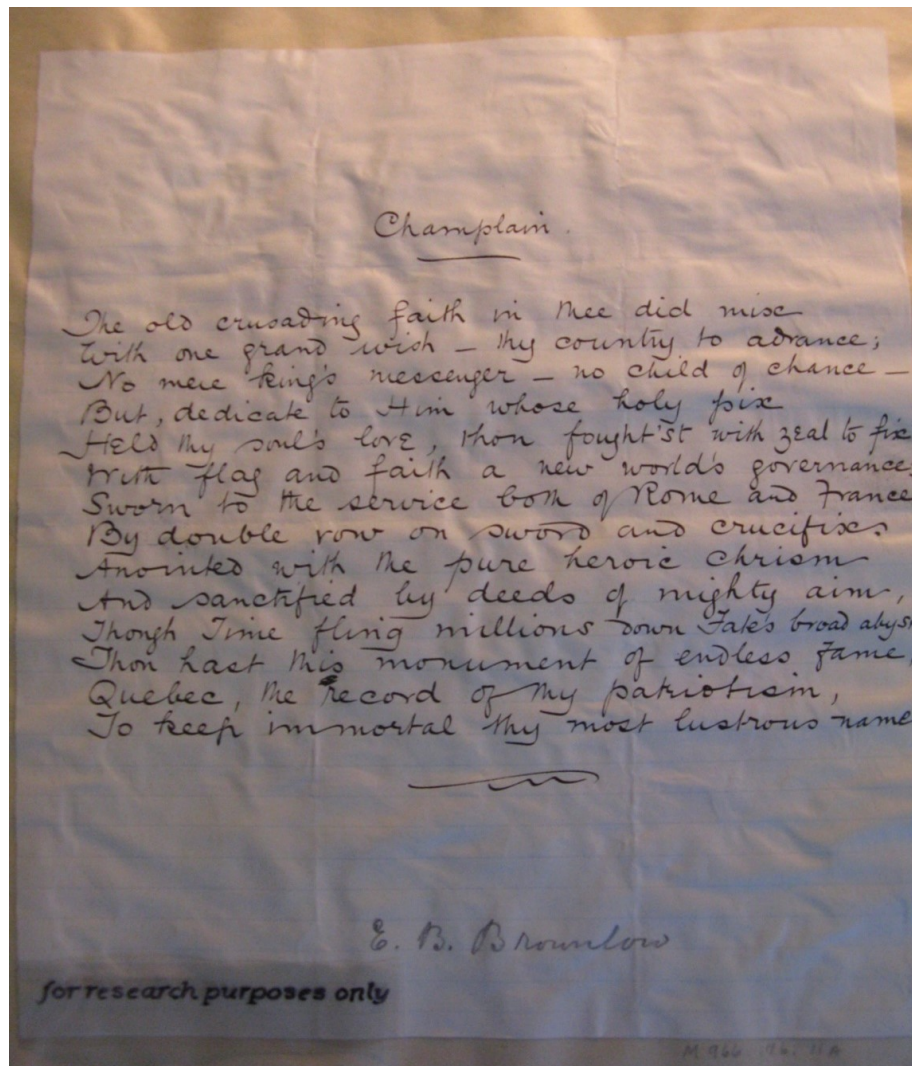 Champlain.
The old crusading faith in thee did mix
With one grand wish – thy country to advance;
No mere king's messenger – no child of chance –
But, dedicate to Him whose holy pix
Held thy soul's love, thou fought'st with zeal to fix
With flag and faith a new world's governance,
Sworn to the service both of Rome and France
By double vow on sword and crucifix.
Anointed with the pure heroic chrism
And sanctified by deeds of mighty aim,
Though Time fling millions down Fate's broad abysm
Thou hast this monument of endless fame,
Quebec, the record of thy patriotism,
To keep immortal thy most lustrous name
E. B. Brownlow
for research purposes only